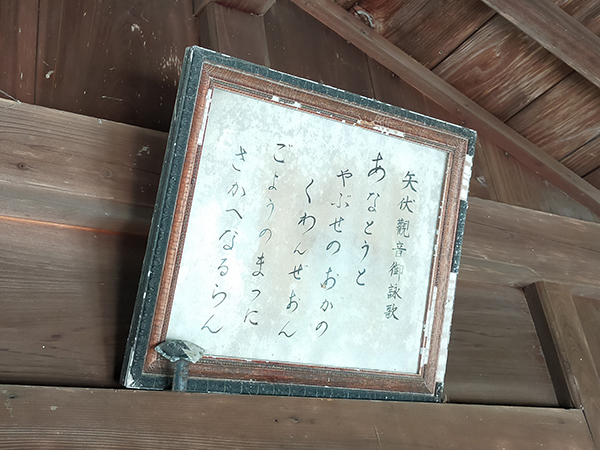 矢伏觀音御詠歌
あなとうと
やぶせのおかの
くわんぜおん
ごようのまつに
さかへなるらん